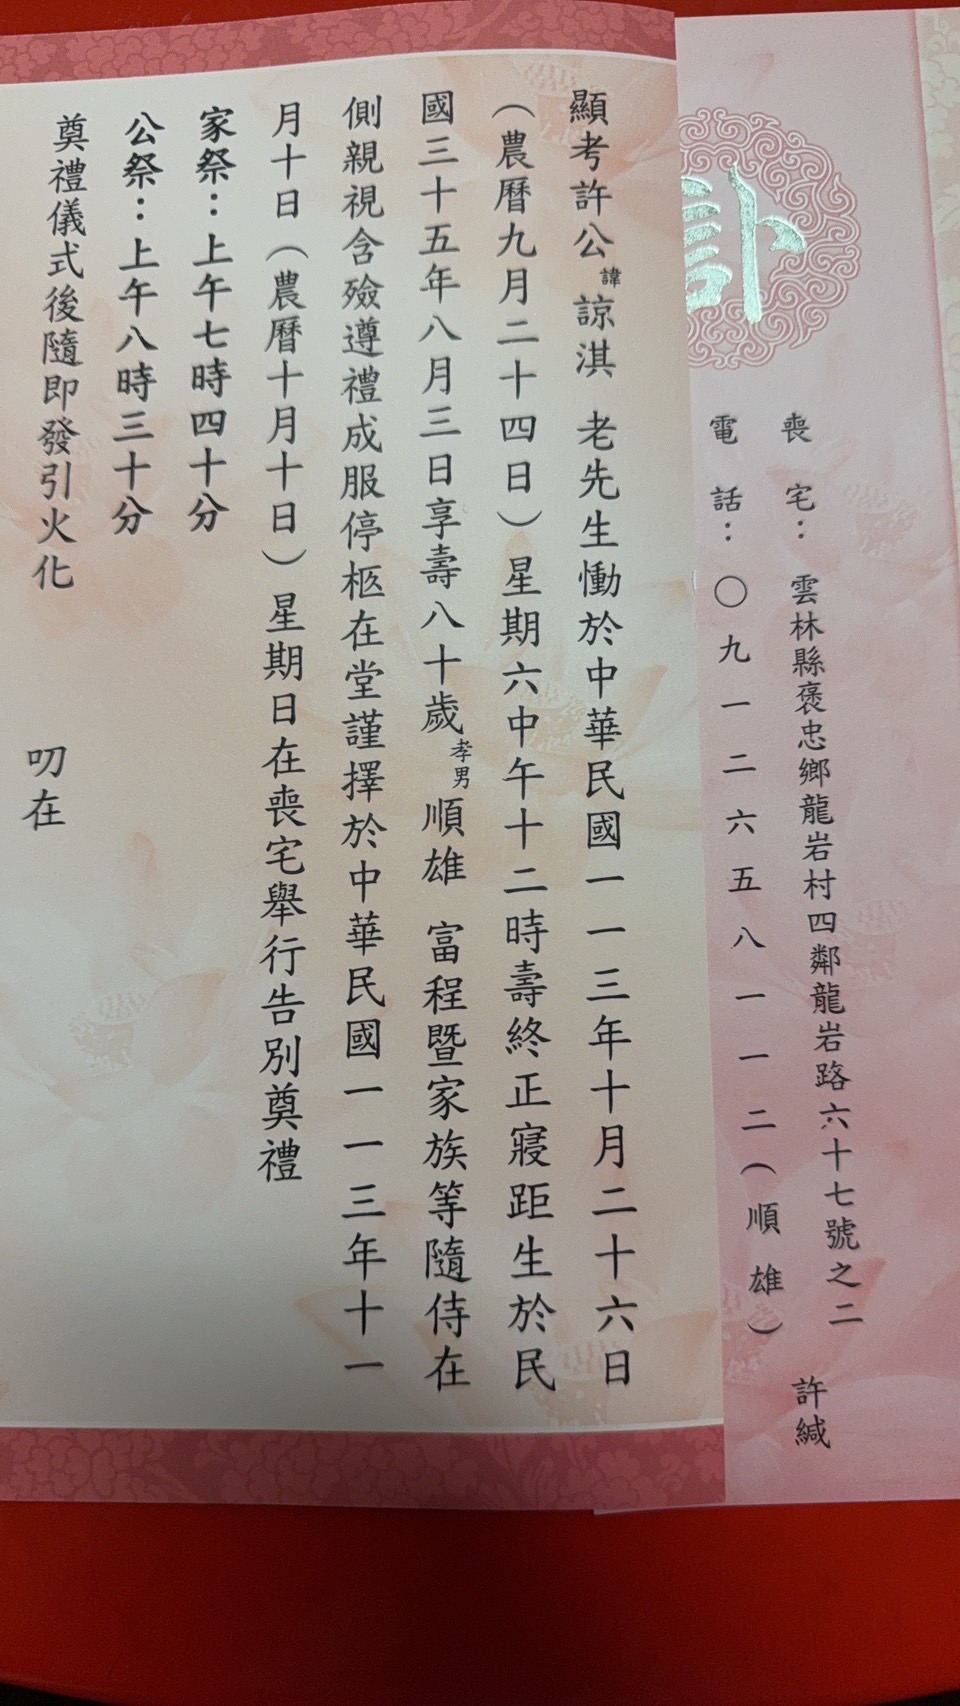 訃
喪宅：雲林縣褒忠鄉龍岩村四鄰龍岩路六十七號之二　許緘
電話：〇九一二六五八一一二（順雄）
顯考許公諱諒淇　老先生慟於中華民國一一三年十月二十六日
（農曆九月二十四日）星期六中午十二時壽終正寢距生於民
國三十五年八月三日享壽八十歲孝男順雄　富程暨家族等隨侍在
側親視含殮遵禮成服停柩在堂謹擇於中華民國一一三年十一
月十日（農曆十月十日）星期日在喪宅舉行告別奠禮
家祭：上午七時四十分
公祭：上午八時三十分
奠禮儀式後隨即發引火化
叨在